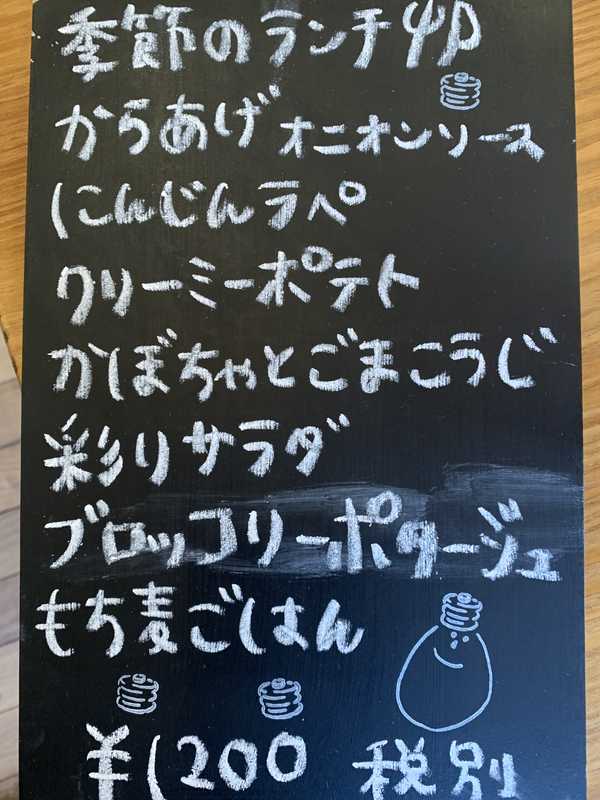 季節のランチ卯
からあげオニオンソース
にんじんラペ
クリーミーポテト
かぼちゃとごまこうじ
彩りサラダ
ブロッコリーポタージュ
もち麦ごはん
¥1200 税別